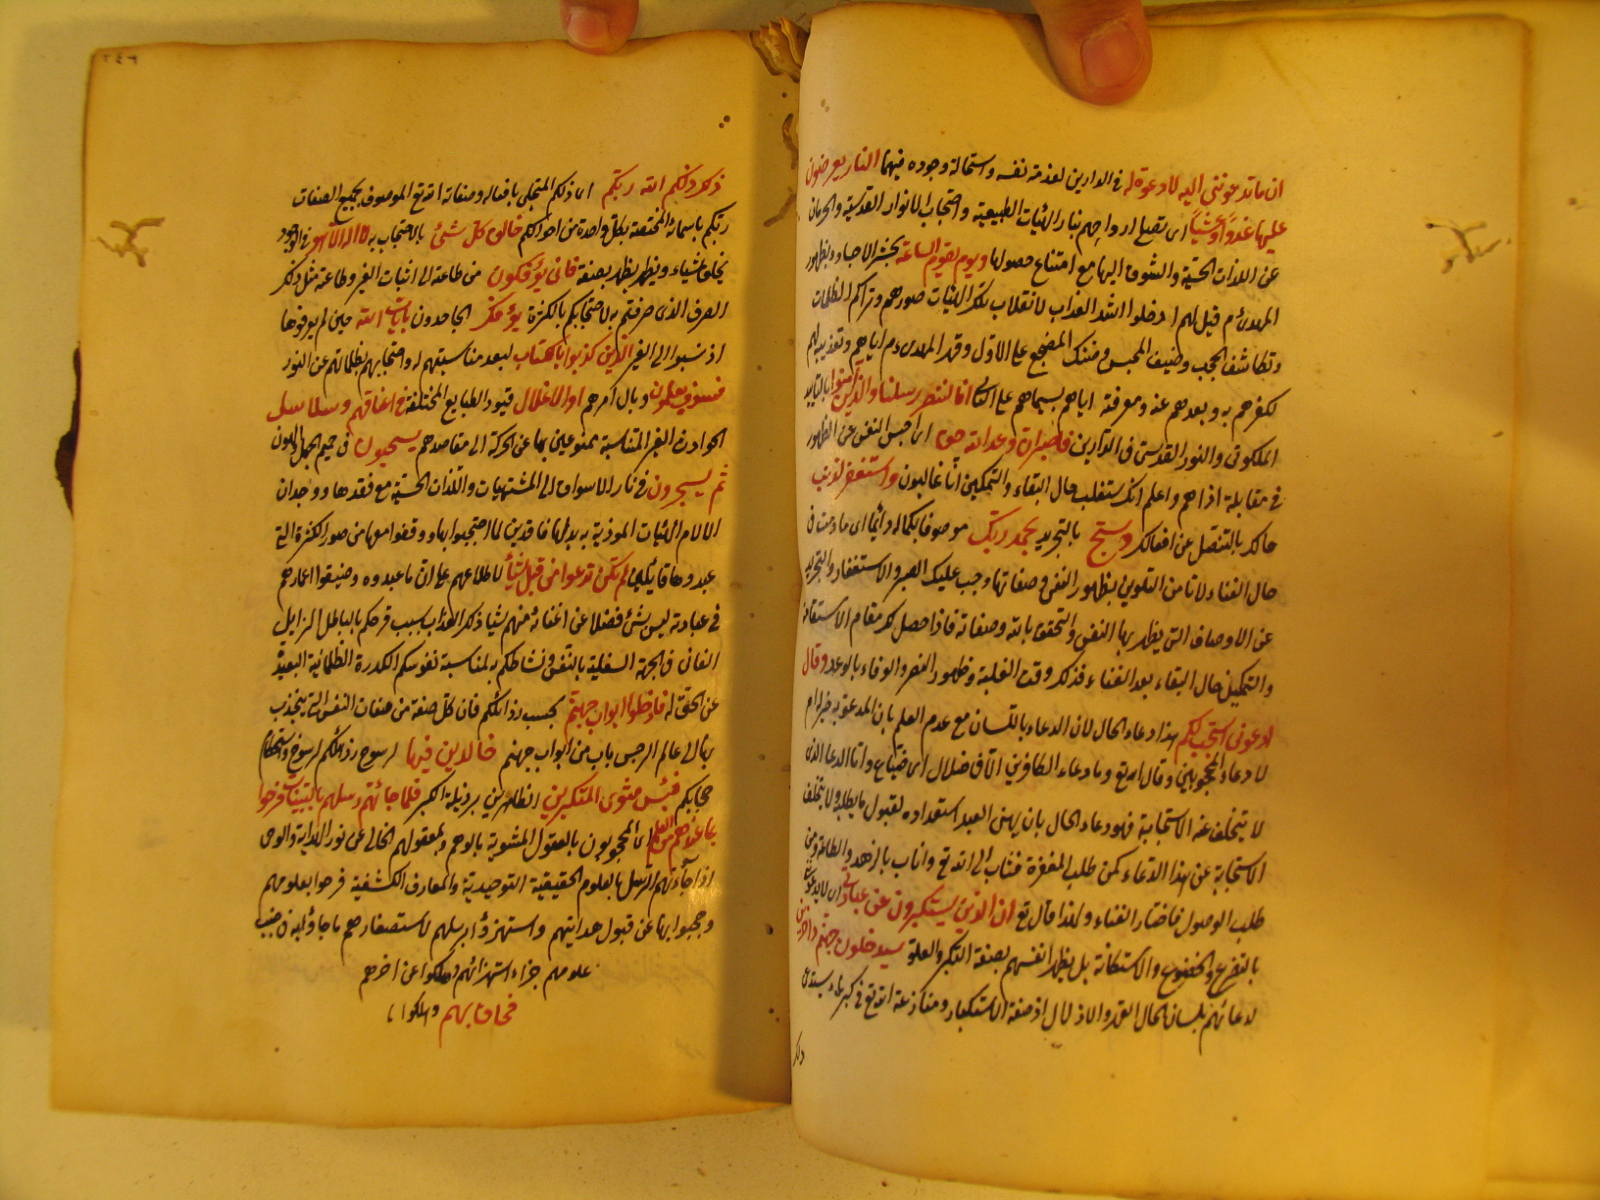 ان ما تدعونني اليه لا دعوة له في الدارين لعدمه نفسه واستحالة وجوده فيهما النار يعرضون
عليها غدوا وعشيا اى تصلى ارواحهم بنار الهيئات الطبيعية واحتجاب الانوار القدسية والحرمان
عن اللذات الحسية والشوق اليها مع امتناع حصولها ويوم تقوم الساعة بحشر الاجساد او بظهور
المهدى ء م قيل لهم ادخلوا اشد العذاب لانقلاب هيئات صورهم وتراكم الظلمات
وتكاثف الحجب وضيق المحبس وضنك المضجع على الاول وقهر المهدى ء م اياهم وتعذيبه لهم
لكفرهم به وبعدهم عنه ومعرفته اياهم بسيماهم على الثانى انا لننصر رسلنا والذين آمنوا بالتاييد
الملكوتى والنور القدسى فى الدارين فاصبر ان وعد الله حق اى احبس النفس عن الظهور
فى مقابلة اذاهم واعلم انك ستغلب حال البقاء والتمكين انا غالبون واستغفر لذنب
حالك بالتنصل عن افعالك وسبح بالتجريد بحمد ربك موصوفا بكماله دائما اى ما دمت فى
حال الفناء لا تأمن التلوين بظهور النفس وصفاتها وجب عليك الصبر والاستغفار والتجريد
عن الاوصاف التى يظهر بها النفس والتحقق بالله وصفاته فاذا حصل لك مقام الاستقامة
والتمكين حال البقاء بعد الفناء فذلك وقت الغلبة وظهور النصر والوفاء بالوعد وقال
ادعونى استجب لكم هذا دعاء الحال لان الدعاء باللسان مع عدم العلم بان المدعو به خير له ام
لا دعاء المحجوبين وقال الله تع وما دعاء الكافرين الا فى ضلال اى ضياع واما الدعا الذى
لا يتخلف عنه الاستجابة فهو دعاء الحال بان يهيئ العبد استعداده لقبول ما يطلبه ولا يتخلف
الاستجابة عن هذا الدعاء كمن طلب المغفرة فتاب الى الله تع واناب بالزهد والطاعة ومن
طلب الوصول فاختار الفناء ولهذا قال تع ان الذين يستكبرون عن عبادتى اى لا يدعونى
بالتضرع والخضوع والاستكانة بل يظهر انفسهم بصفة التكبر والعلو سيدخلون جهنم داخرين
لدعائهم بلسان الحال القهر والاذلال اذ صفة الاستكبار ومنازعة الله تع فى كبريائه يستدعى
ذلك
٢٤٦
ذلك ذلكم الله ربكم اى ذلكم المتجلى بافعاله وصفاته الله تع الموصوف بجميع الصفات
ربكم باسمائه المختصة بكل واحدة من احوالكم خالق كل شئ بالاحتجاب به لا اله الا هو فى الوجود
يخلق شيئاء ويظهر بظهر بصفة فانى يؤفكون من طاعته الى اثبات الغير وطاعته مثل ذلك
الصرف الذى صرفتم به لاحتجابكم بالكثرة يؤفك الجاحدون بآيات الله حين لم يعرفوها
اذ نسبوا الى الغير الذين كذبوا بالكتاب لبعد مناسبتهم له واحتجابهم بظلماتهم عن النور
فسوف يعلمون وبال امرهم اذ الاغلال قيود الطبايع المختلفة فى اعناقهم وسلاسل
الحوادث الغير المتناسبة ممنوعين بها عن الحركة الى مقاصدهم يسحبون فى حميم الجهل والهون
ثم يسجرون فى نار الاشواق الى المشتهيات واللذات الحسية مع فقدها ووجدان
الالام الهيئات الموذية به بدلها فاقدين لما احتجبوا بها ووقفوا معها من صور الكثرة التى
عبدوها قائلين لم نكن ندعوا من قبل شيأ لاطلاعهم على ان ما عبدوه وضيعوا اعمارهم
فى عبادته ليس بشئ فضلا عن اغنائه عنهم شيئا ذلك العذاب بسبب فرحكم بالباطل الزايل
الفانى فى الجهة السفلية بالنفس ونشاطكم به لمناسبة نفوسكم الكدرة الظلمانية البعيدة
عن الحق له فادخلوا ابواب جهنم بحسب رذائلكم فان كل صفة من صفات النفس التى ينجذب
بها الى عالم الرجس باب من ابواب جهنم خالدين فيها لرسوخ رذائلكم لرسوخ واستحكام
حجابكم فبئس مثوى المتكبرين الظاهرين برذيلة الكبر فلما جائتهم رسلهم بالبينات فرحوا
بما عندهم من العلم اى المحجوبون بالعقول المشوبة بالوهم وبمعقولهم الخالى عن نور الهداية والوحى
اذا جآءتهم الرسل بالعلوم الحقيقية التوحيدية والمعارف الكشفية فرحوا بعلومهم
وحجبوا بها عن قبول هدايتهم واستهزؤا برسلهم لاستصغارهم ما جاؤا به فى جنب
علومهم جزاء استهزائهم وهلكوا عن اخرهم
فحاق بهم وهلكوا